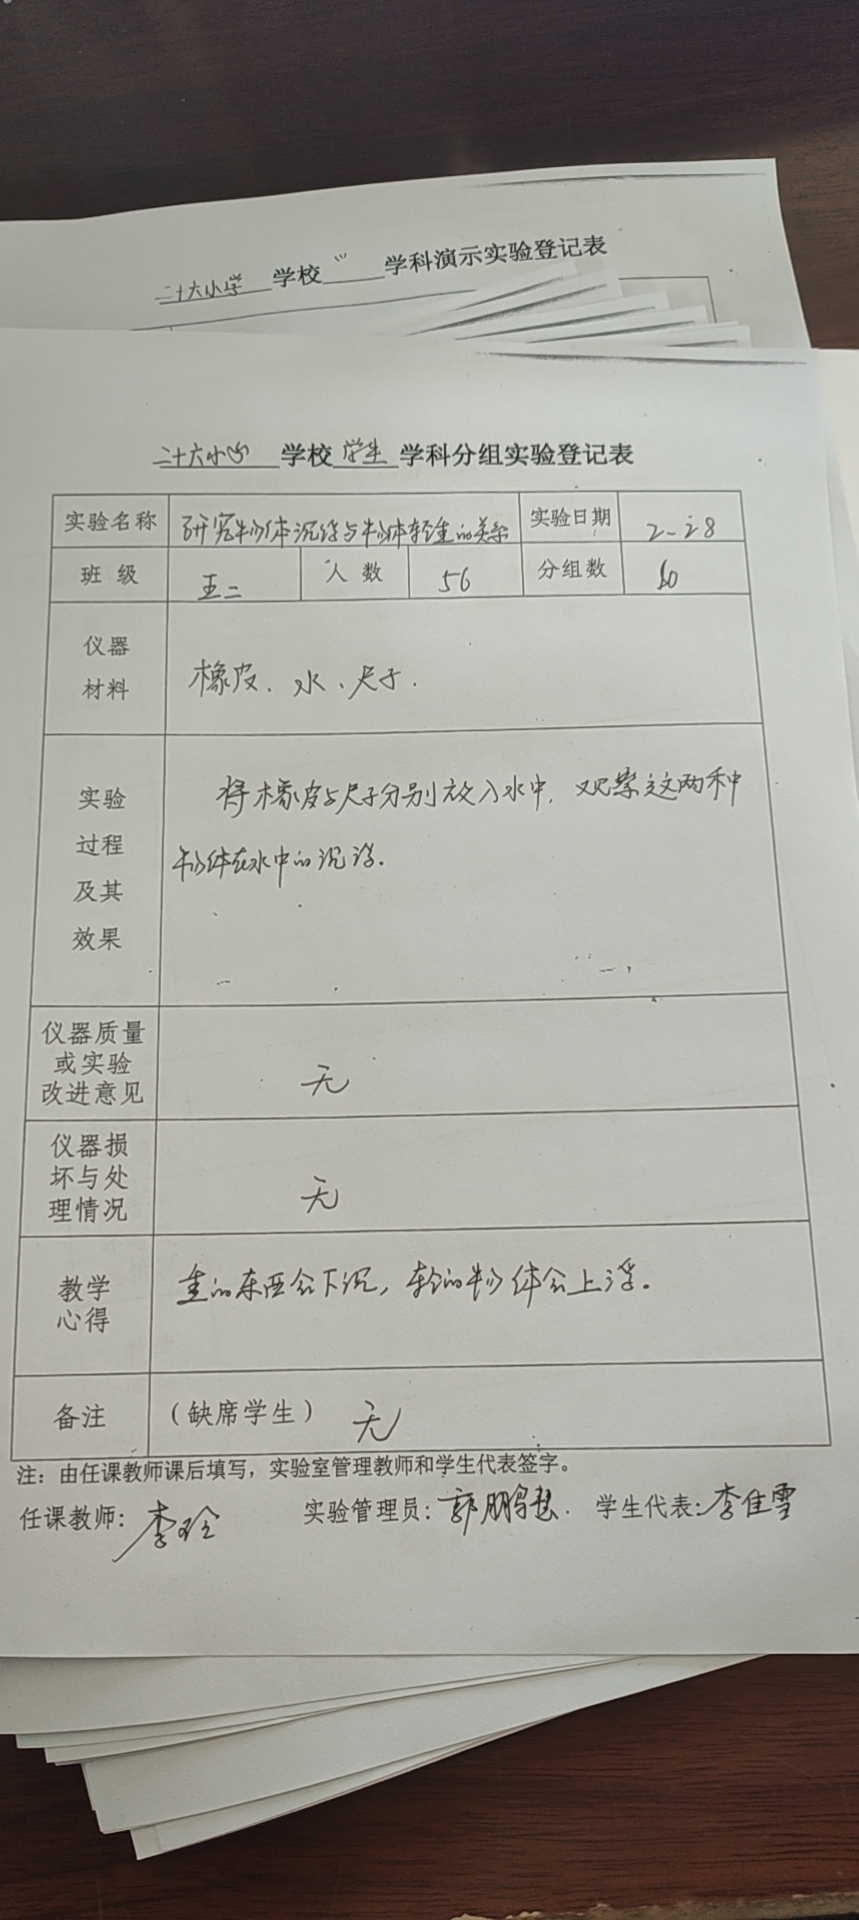 二十六小学 学校 学科演示实验登记表
二十六小 学校 学生 学科分组实验登记表
实验名称 研究物体沉浮与物体轻重的关系 实验日期 2-28
班级 五二 人数 56 分组数
仪器
材料
橡皮、水、尺子.
实验
过程
及其
效果
将橡皮与尺子分别放入水中，观察这两种
物体在水中的沉浮.
仪器质量
或实验
改进意见
无
仪器损
坏与处
理情况
无
教学
心得
重的东西会下沉，轻的物体会上浮。
备注 （缺席学生） 无
注：由任课教师课后填写，实验室管理教师和学生代表签字。
任课教师：李玲 实验管理员：郭鹏 学生代表：李佳雪